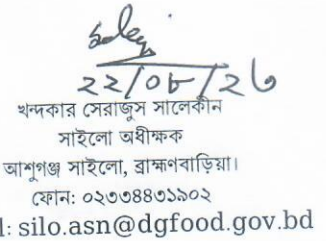 ২২/০৮/২৩
খন্দকার সেরাজুস সালেকীন
সাইলো অধীক্ষক
আশুগঞ্জ সাইলো, ব্রাহ্মণবাড়িয়া।
ফোন: ০২৩৩৪৪৩১৯০২
l: silo.asn@dgfood.gov.bd